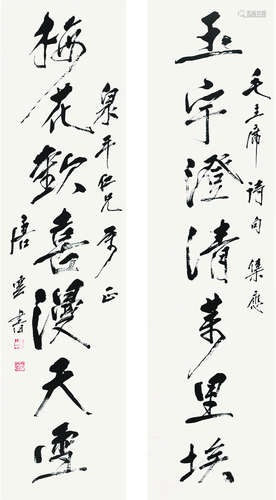 毛主席詩句集應
玉宇澄清萬里埃
泉平仁兄屬正
梅花歡喜漫天雪
唐雲書